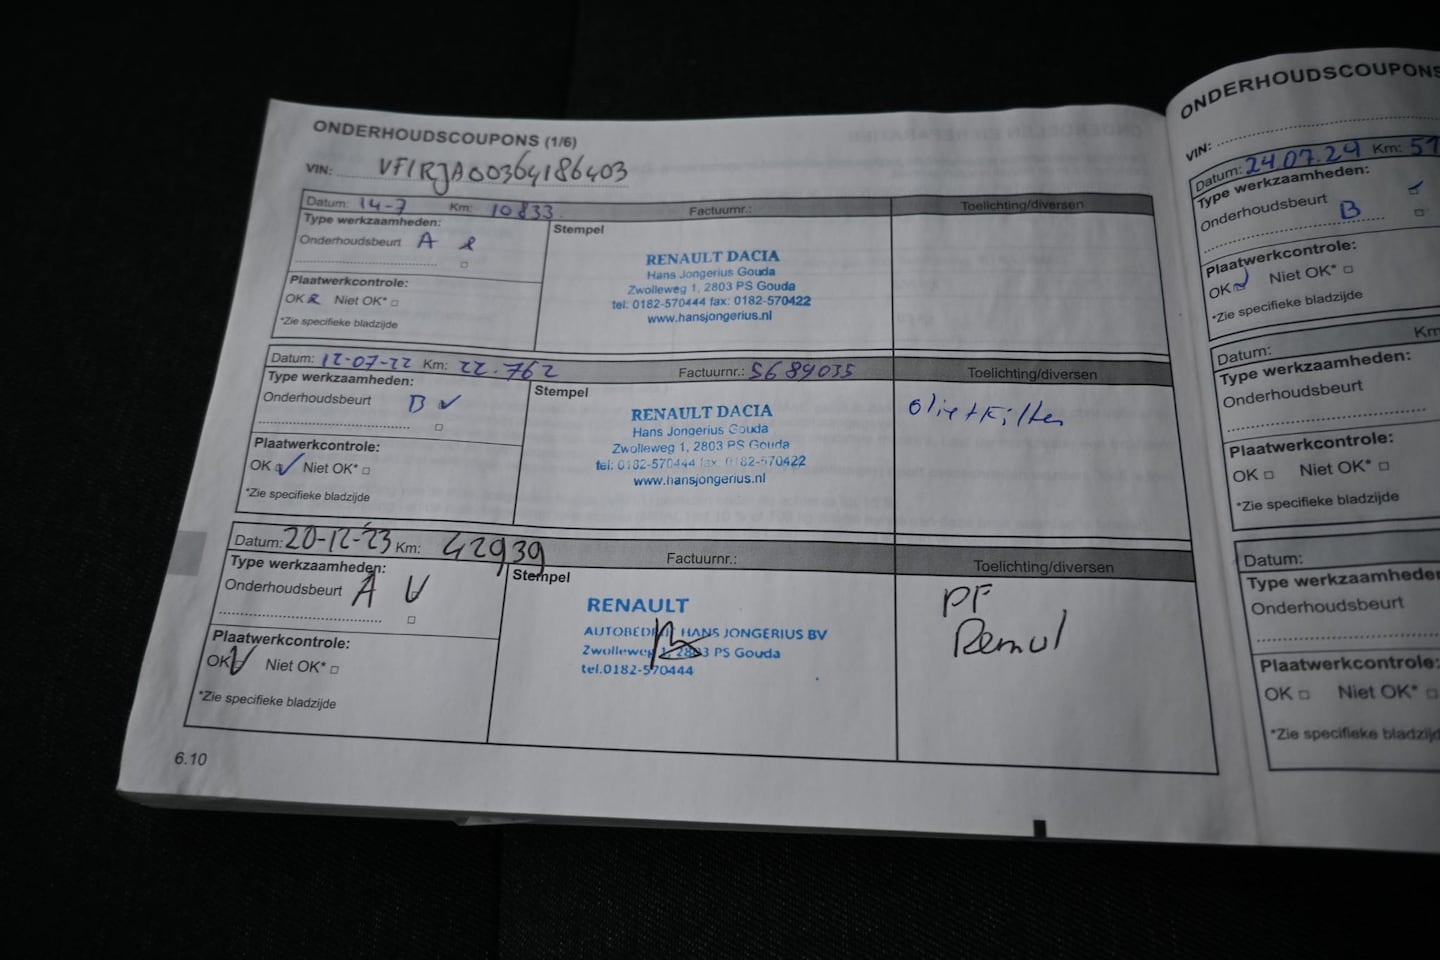 ONDERHOUDSCOUPONS (1/6)
VIN: VF1RJA00364186403
Datum: 14-7 Km: 10833 Factuurnr.: Toelichting/diversen
Type werkzaamheden:
Onderhoudsbeurt A
Stempel
RENAULT DACIA
Hans Jongerius Gouda
Zwolleweg 1, 2803 PS Gouda
tel: 0182-570444 fax: 0182-570422
www.hansjongerius.nl
Plaatwerkcontrole:
OK Niet OK*
*Zie specifieke bladzijde
Datum: 12-07-22 Km: 22.762 Factuurnr.: 5689035 Toelichting/diversen
Type werkzaamheden:
Onderhoudsbeurt B
Stempel
RENAULT DACIA
Hans Jongerius Gouda
Zwolleweg 1, 2803 PS Gouda
tel: 0182-570444 fax: 0182-570422
www.hansjongerius.nl
olie+filter
Plaatwerkcontrole:
OK Niet OK*
*Zie specifieke bladzijde
Datum: 20-12-'23 Km: 42939 Factuurnr.: Toelichting/diversen
Type werkzaamheden:
Onderhoudsbeurt A
Stempel
RENAULT
AUTOBEDRIJF HANS JONGERIUS BV
Zwolleweg 1, 2803 PS Gouda
tel.0182-570444
PF
Plaatwerkcontrole:
OK Niet OK*
*Zie specifieke bladzijde
6.10
ONDERHOUDSCOUPONS
VIN:
Datum: 24.07.24 Km: 51
Type werkzaamheden:
Onderhoudsbeurt
B
Plaatwerkcontrole:
OK Niet OK*
*Zie specifieke bladzijde
Datum: Km
Type werkzaamheden:
Onderhoudsbeurt
Plaatwerkcontrole:
OK Niet OK*
*Zie specifieke bladzijde
Datum:
Type werkzaamheden
Onderhoudsbeurt
Plaatwerkcontrole:
OK Niet OK*
*Zie specifieke bladzijd